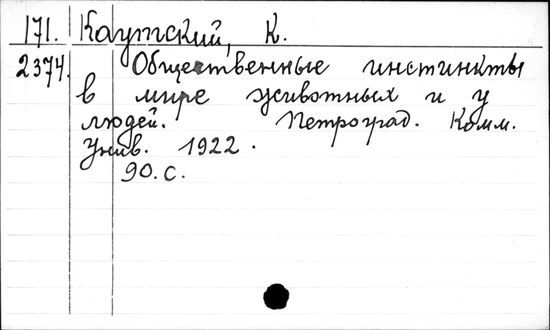 171. Каутский, К.
2374. Общественные инстинкты
в мире животных и у
людей. Петроград. Комм.
Унив. 1922.
90.с.